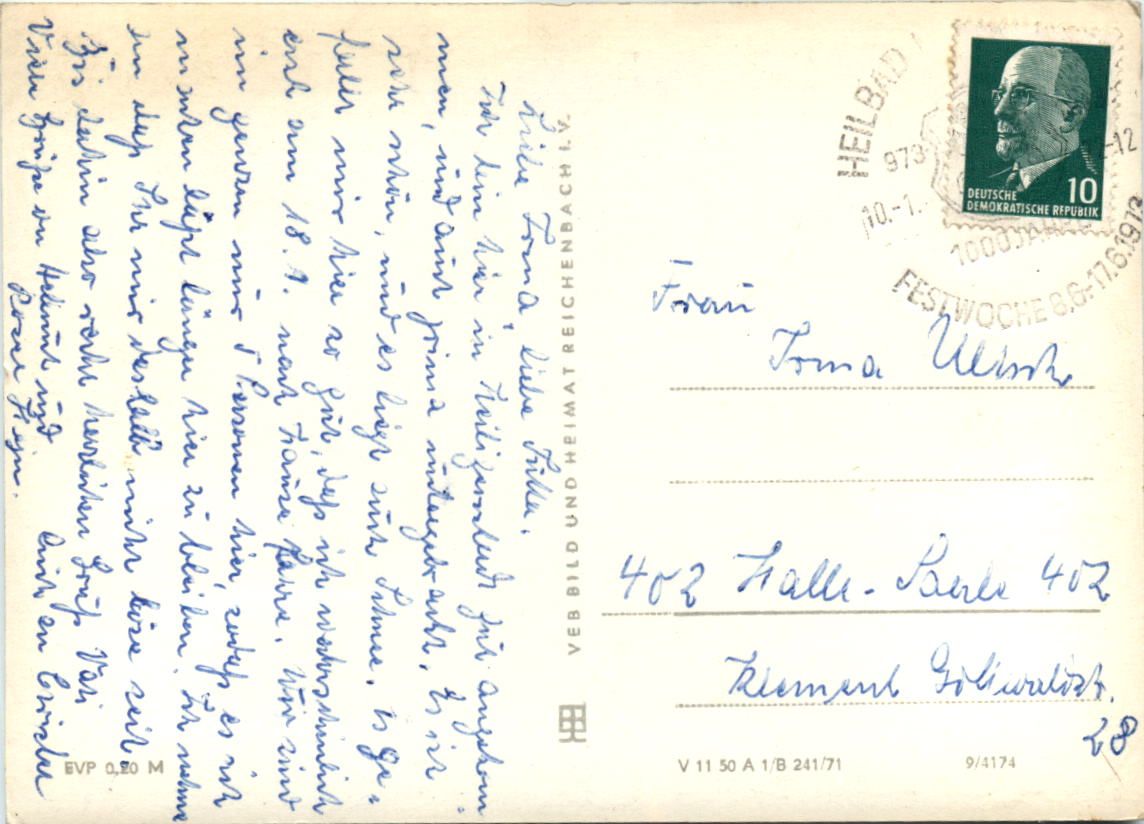 Liebe Irma, liebe Jutta.
Ich bin hier in Heiligenstadt gut angekom
men, und auch prima untergebracht. Es ist
sehr schön, und es liegt auch Schnee. Es ge-
fällt mir hier so gut, daß ich wahrscheinlich
erst am 18.1. nach Hause fahre. Wir sind
im ganzen nur 5 Personen hier, sodaß es sich
lohnt länger hier zu bleiben. Ich nehme
an daß Ihr mir deshalb nicht böse seit.
Bis dahin also recht herzlichen Gruß Vati
Viele Grüße an Helmut und auch an
VEB BILD UND HEIMAT REICHENBACH I. V.
EVP 0,20 M
HEILBAD
973
10.-1.
-12
1000 JAHRE
FESTWOCHE 8.6.-17.6.1973
10
DEUTSCHE
DEMOKRATISCHE REPUBLIK
Frau
Irma
402 Halle-Saale 402
Klement Gottwaldstr.
28
V 11 50 A 1/B 241/71
9/4174